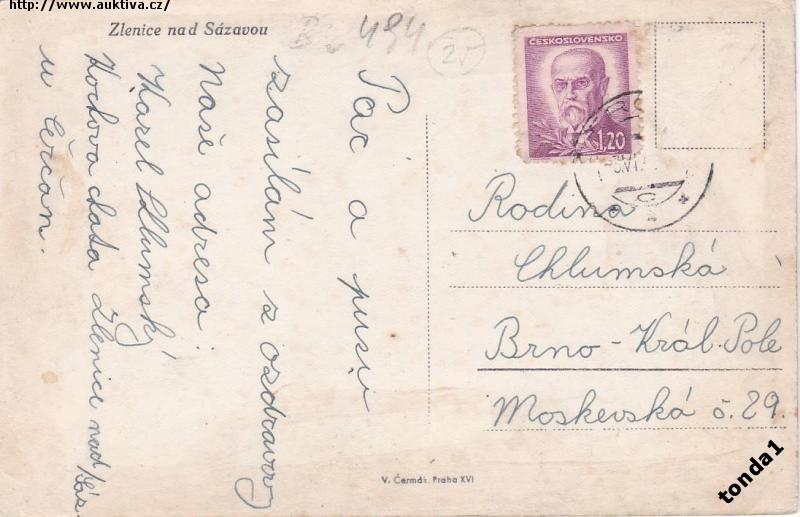 http://www.auktiva.cz/
Zlenice nad Sázavou
494
25
ČESKOSLOVENSKO
1,20
Pac a pusu
zasílám z ozdravovny
Naše adresa:
Karel Chlumský
Kochova chata Zlenice nad/Sáz.
u Čerčan.
Rodina
Chlumská
Brno-Král.Pole
Moskevská č. 29.
V. Čermák, Praha XVI
tonda1